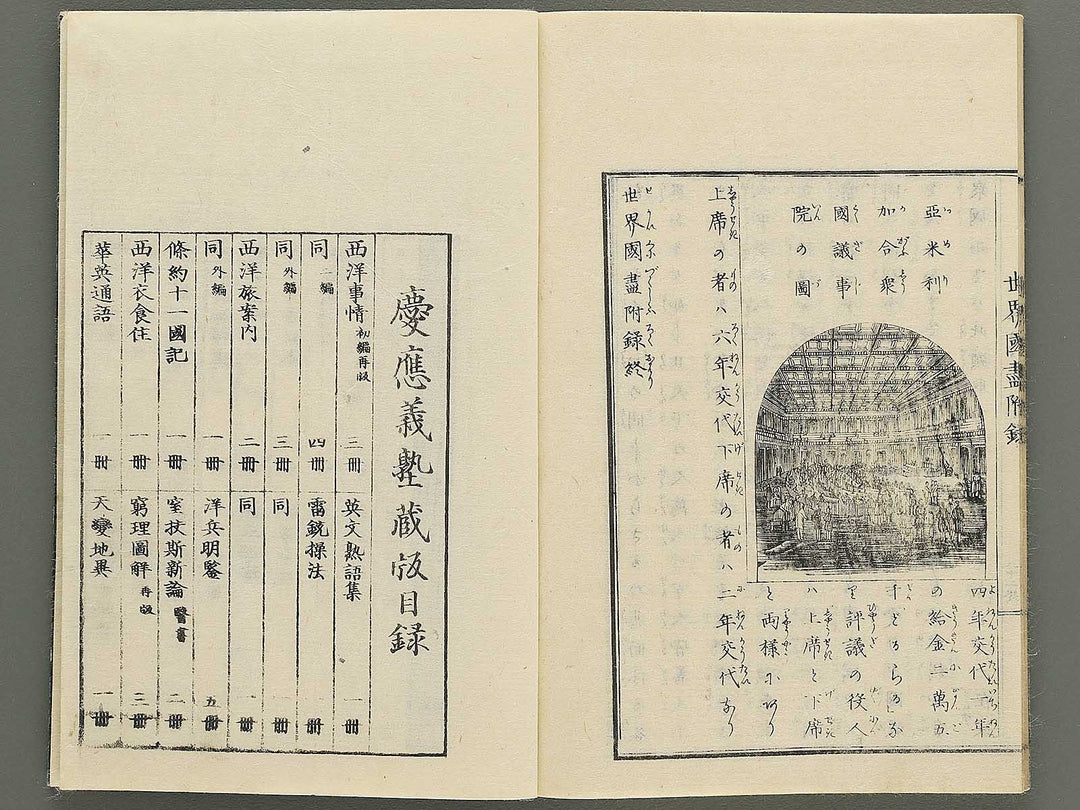 世界國盡附録
亞米利
加合衆
國議事
院の圖
四年交代一年
の給金二萬五
千どるらるな
り評議の役人
ハ上席と下席
と両様にあり
上席の者ハ六年交代下席の者ハ二年交代なり
世界國盡附録終
慶應義塾蔵版目録
西洋事情 初編再版 三冊
同 二編 四冊
同 外編 三冊
西洋旅案内 二冊
同 外編 一冊
條約十一國記 一冊
西洋衣食住 一冊
華英通語 一冊
英文熟語集 一冊
雷銃操法 一冊
同 一冊
同 一冊
洋兵明鑒 五冊
窒扶斯新論 醫書 二冊
窮理圖解 再版 三冊
天變地異 一冊